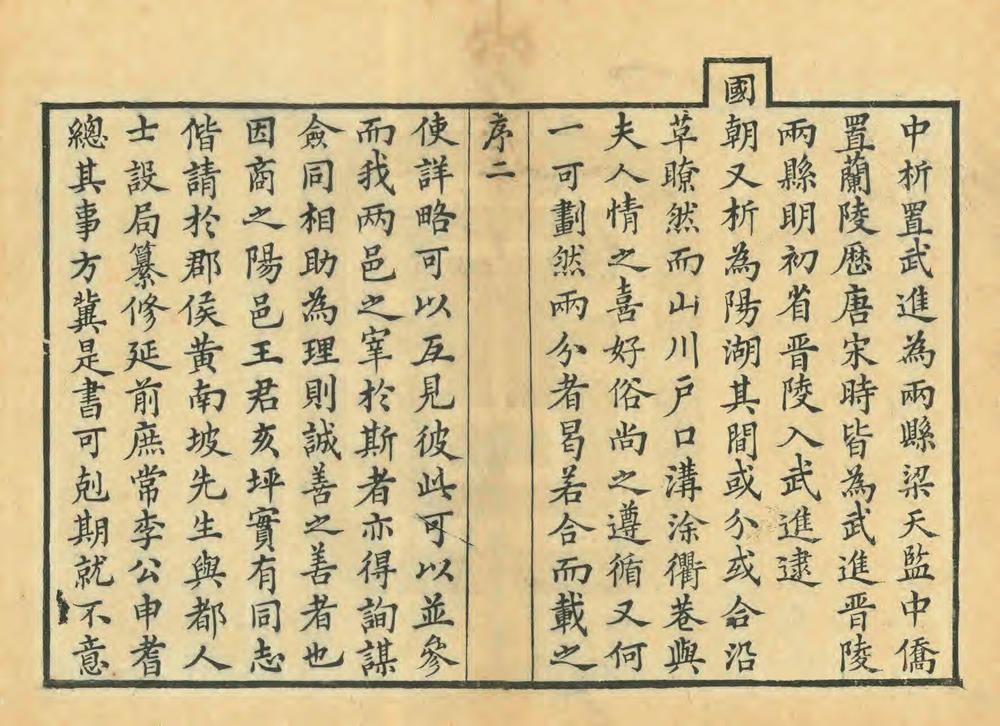 中析置武進為兩縣梁天監中僑
置蘭陵歷唐宋時皆為武進晉陵
兩縣明初省晉陵入武進逮
國朝又析為陽湖其間或分或合沿
草瞭然而山川戸口溝涂衢巷與
夫人情之喜好俗尚之遵循又何
一可劃然兩分者曷若合而載之
序二
使詳略可以互見彼此可以並參
而我两邑之宰於斯者亦得詢謀
僉同相助為理則誠善之善者也
因商之陽邑王君亥坪實有同志
偕請於郡侯黃南坡先生與都人
士設局纂修延前庶常李公申耆
總其事方冀是書可剋期就不意